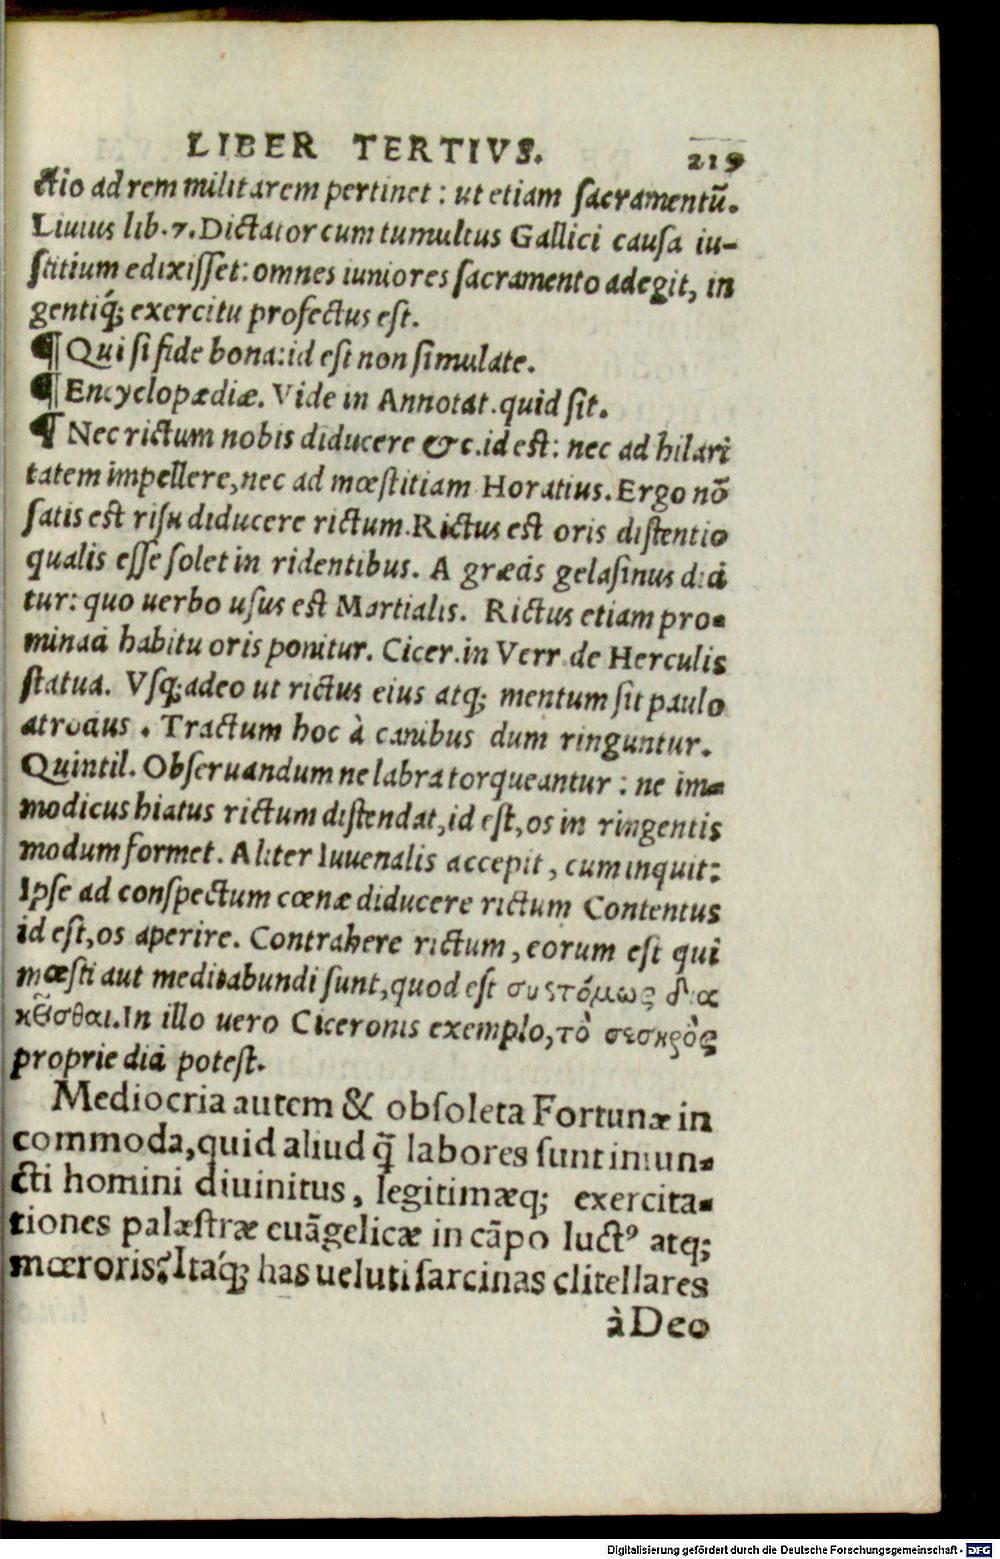 LIBER TERTIVS. 219
ctio ad rem militarem pertinet: ut etiam sacramentū.
Liuius lib. 7. Dictator cum tumultus Gallici causa iu-
stitium edixisset: omnes iuniores sacramento adegit, in
gentiq́; exercitu profectus est.
¶ Qui si fide bona: id est non simulate.
¶ Encyclopædiæ. Vide in Annotat. quid sit.
¶ Nec rictum nobis diducere &c. id est: nec ad hilari
tatem impellere, nec ad mœstitiam Horatius. Ergo nō
satis est risu diducere rictum. Rictus est oris distentio
qualis esse solet in ridentibus. A græcis gelasinus dici
tur: quo uerbo usus est Martialis. Rictus etiam pro-
minaci habitu oris ponitur. Cicer. in Verr. de Herculis
statua. Vsq; adeo ut rictus eius atq; mentum sit paulo
atrocius. Tractum hoc à canibus dum ringuntur.
Quintil. Obseruandum ne labra torqueantur: ne im-
modicus hiatus rictum distendat, id est, os in ringentis
modum formet. Aliter Iuuenalis accepit, cum inquit:
Ipse ad conspectum cœnæ diducere rictum Contentus
id est, os aperire. Contrahere rictum, eorum est qui
mœsti aut meditabundi sunt, quod est συστόμως δια
κεῖσθαι. In illo uero Ciceronis exemplo, τὸ σεσηρὸς
proprie dici potest.
Mediocria autem & obsoleta Fortunæ in
commoda, quid aliud q̄ labores sunt iniun-
cti homini diuinitus, legitimæq; exercita-
tiones palæstræ euāgelicæ in cāpo luctꝰ atq;
mœroris? Itaq́; has ueluti sarcinas clitellares
à Deo
Digitalisierung gefördert durch die Deutsche Forschungsgemeinschaft - DFG